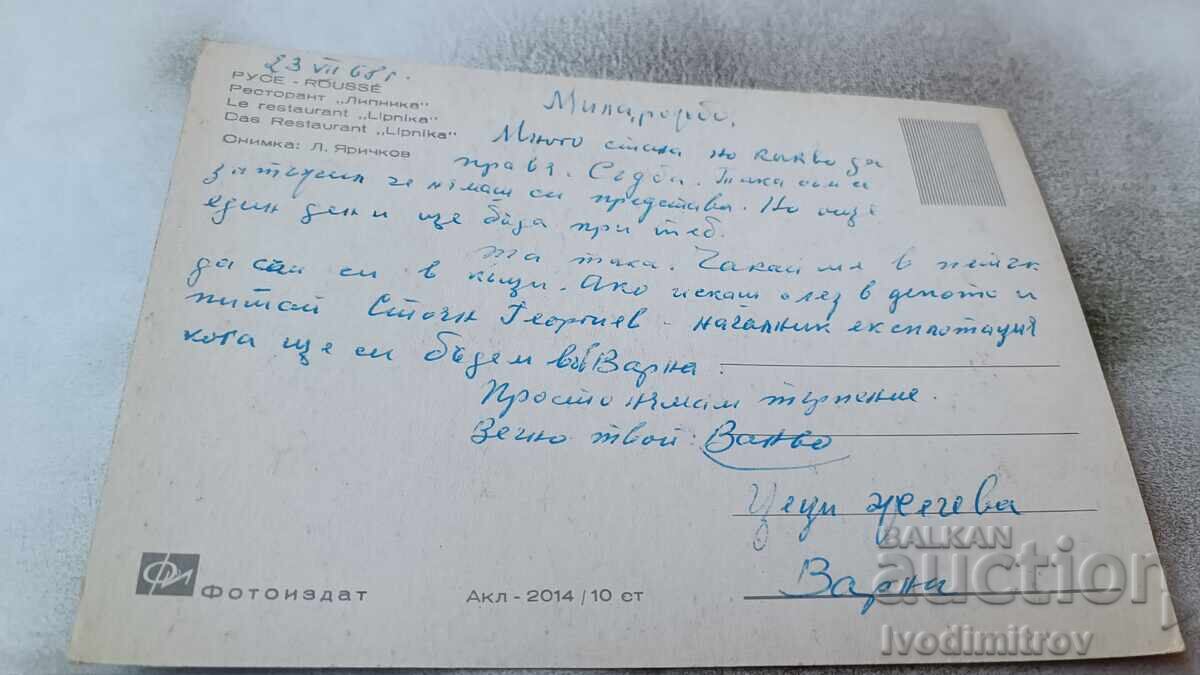 23 VII 68 г.
РУСЕ - ROUSSE
Ресторант „Липника"
Le restaurant „Lipnika"
Das Restaurant „Lipnika"
Снимка: Л. Яричков
Мила,
Много стана но какво да
правя. Съдба. Така съм
че нямаш си представа. Но още
един ден и ще бъда при теб.
та така. Чакай ме в петък
да си в къщи. Ако искаш слез в депото и
питай Стоян Георгиев - началник експлотация
кога ще си бъдем във Варна.
Просто нямам търпение.
Вечно твой: Ваньо
Цеци Жечева
Варна
Фотоиздат
Акл - 2014 / 10 ст
BALKAN
auction
Ivodimitrov